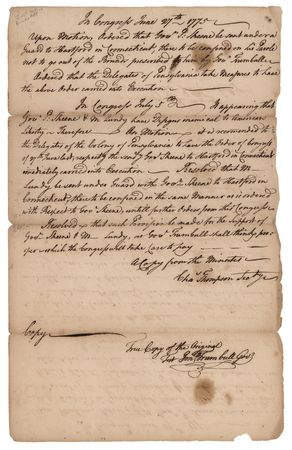 In Congress June 27th 1775
Upon Motion, Ordered that Govr P. Skeene be sent under a
Guard to Hartford in Connecticut, there to be confined on his Parole
not to go out of the Bounds prescribed to him by Govr Trumbull
Ordered that the Delegates of Pensylvania take Measures to have
the above Order carried into Execution
In Congress July 5th It appearing that
Govr P. Skeene & Mr Lundy have Designs inimical to American
Liberty Therefore On Motion it is recommended to
the Delegates of the Colony of Pensylvania to have the Order of Congress
of 27th June last, respecting the sendg Govr Skeene to Hartford in Connecticut
imediately carried into Execution Resolved that Mr
Lundy be sent under Guard with Govr Skeene to Hartford in
Connecticut, there to be confined in the same Manner as is ordered
with Respect to Govr Skeene, untill further Orders from this Congress
Resolved that such Provision be made for the Support of
Govr Skeene & Mr Lundy, as Govr Trumbull shall think pro-
per which the Congress will take Care to pay
A Copy from the Minutes
Cha Thompson Secry
Copy
True Copy of the Original
Test Jonth Trumbull Govr